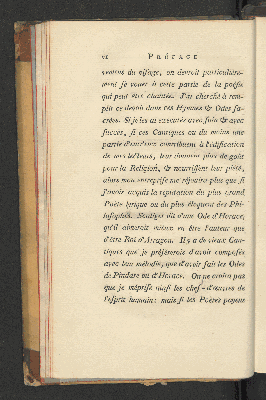 vi PRÉFACE
vemens du visage, on devoit particuliere-
ment se vouer à cette partie de la poésie
qui peut être chantée. J'ai cherché à rem-
plir ce dessein dans ces Hymnes & Odes sa-
crées. Si je les ai executées avec soin & avec
succes, si ces Cantiques ou du moins une
partie d'entr'eux contribuent à l'édification
de mes lecteurs, leur donnent plus de goût
pour la Religion, & nourrissent leur piété,
alors mon entreprise me réjouira plus que si
j'avois acquis la réputation du plus grand
Poëte lyrique ou du plus éloquent des Phi-
losophes. Scaliger dit d'une Ode d'Horace,
qu'il aimeroit mieux en être l'auteur que
d'être Roi d'Arragon. Il y a de vieux Can-
tiques que je préférerois d'avoir composés
avec leur mélodie, que d'avoir fait les Odes
de Pindare ou d'Horace. On ne croira pas
que je méprise ainsi les chef-d'œuvres de
l'esprit humain: mais si les Poëtes payens